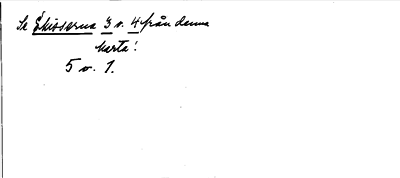 Se Skisserna 3 o. 4 från denna
karta!
5 o. 1.